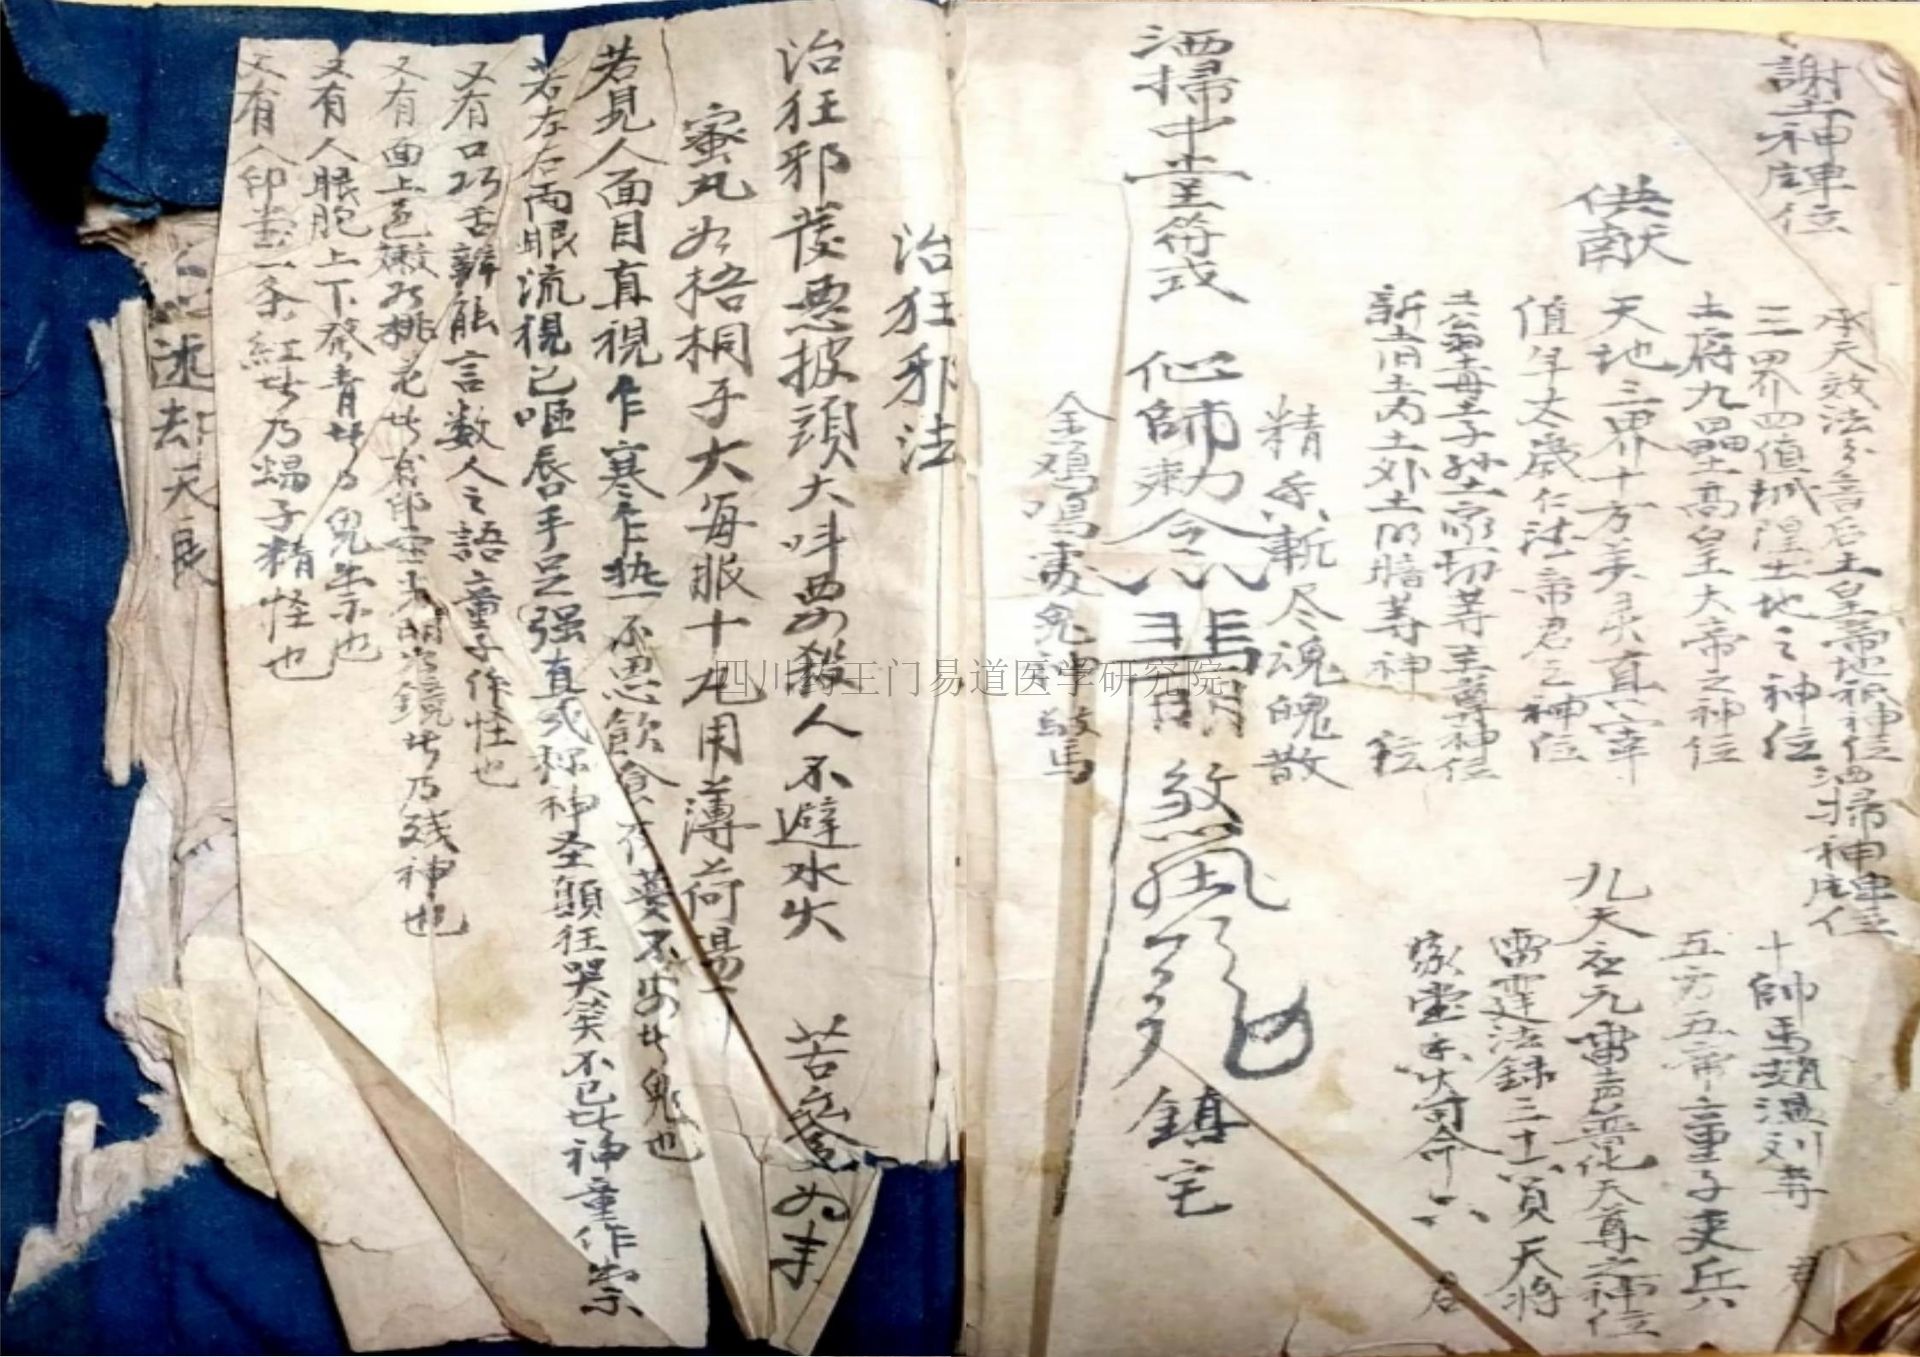 謝土神牌位
供献
承天效法后土皇帝地祇神位
三界四值城隍土地之神位
土府九壘高皇大帝之神位
天地三界十方真宰
值年太歲仁法帝君之神位
土公土母土子土孫一切等主尊神位
新土旧土内土外土明暗等神位
洒掃神牌位
十帥馬趙温刘等
五方五帝童子夷兵
九天应元雷声普化天尊之神位
雷霆法録三十六員天将
家堂香火司命六
精斬尽魂魄散
洒掃中堂符式
師勅令
鎮宅
金鸡鳴鬼神驚
治狂邪法
治狂邪發惡披頭大呌要殺人不避水火
苦参為末
蜜丸如梧桐子大每服十丸用薄荷湯下
若見人面目直視乍寒乍热不思飲食不安此鬼也
若左右兩眼流視已咂唇手足强直或称神圣顛狂哭笑不已此神童作祟
又有口巧舌辯能言數人之語童子作怪也
又有面上色嫩如桃花此鏡此乃殘神也
又有人眼胞上下發青此乃鬼祟也
又有人印堂一条紅此乃蝎子精怪也
述却天良
四川药王门易道医学研究院